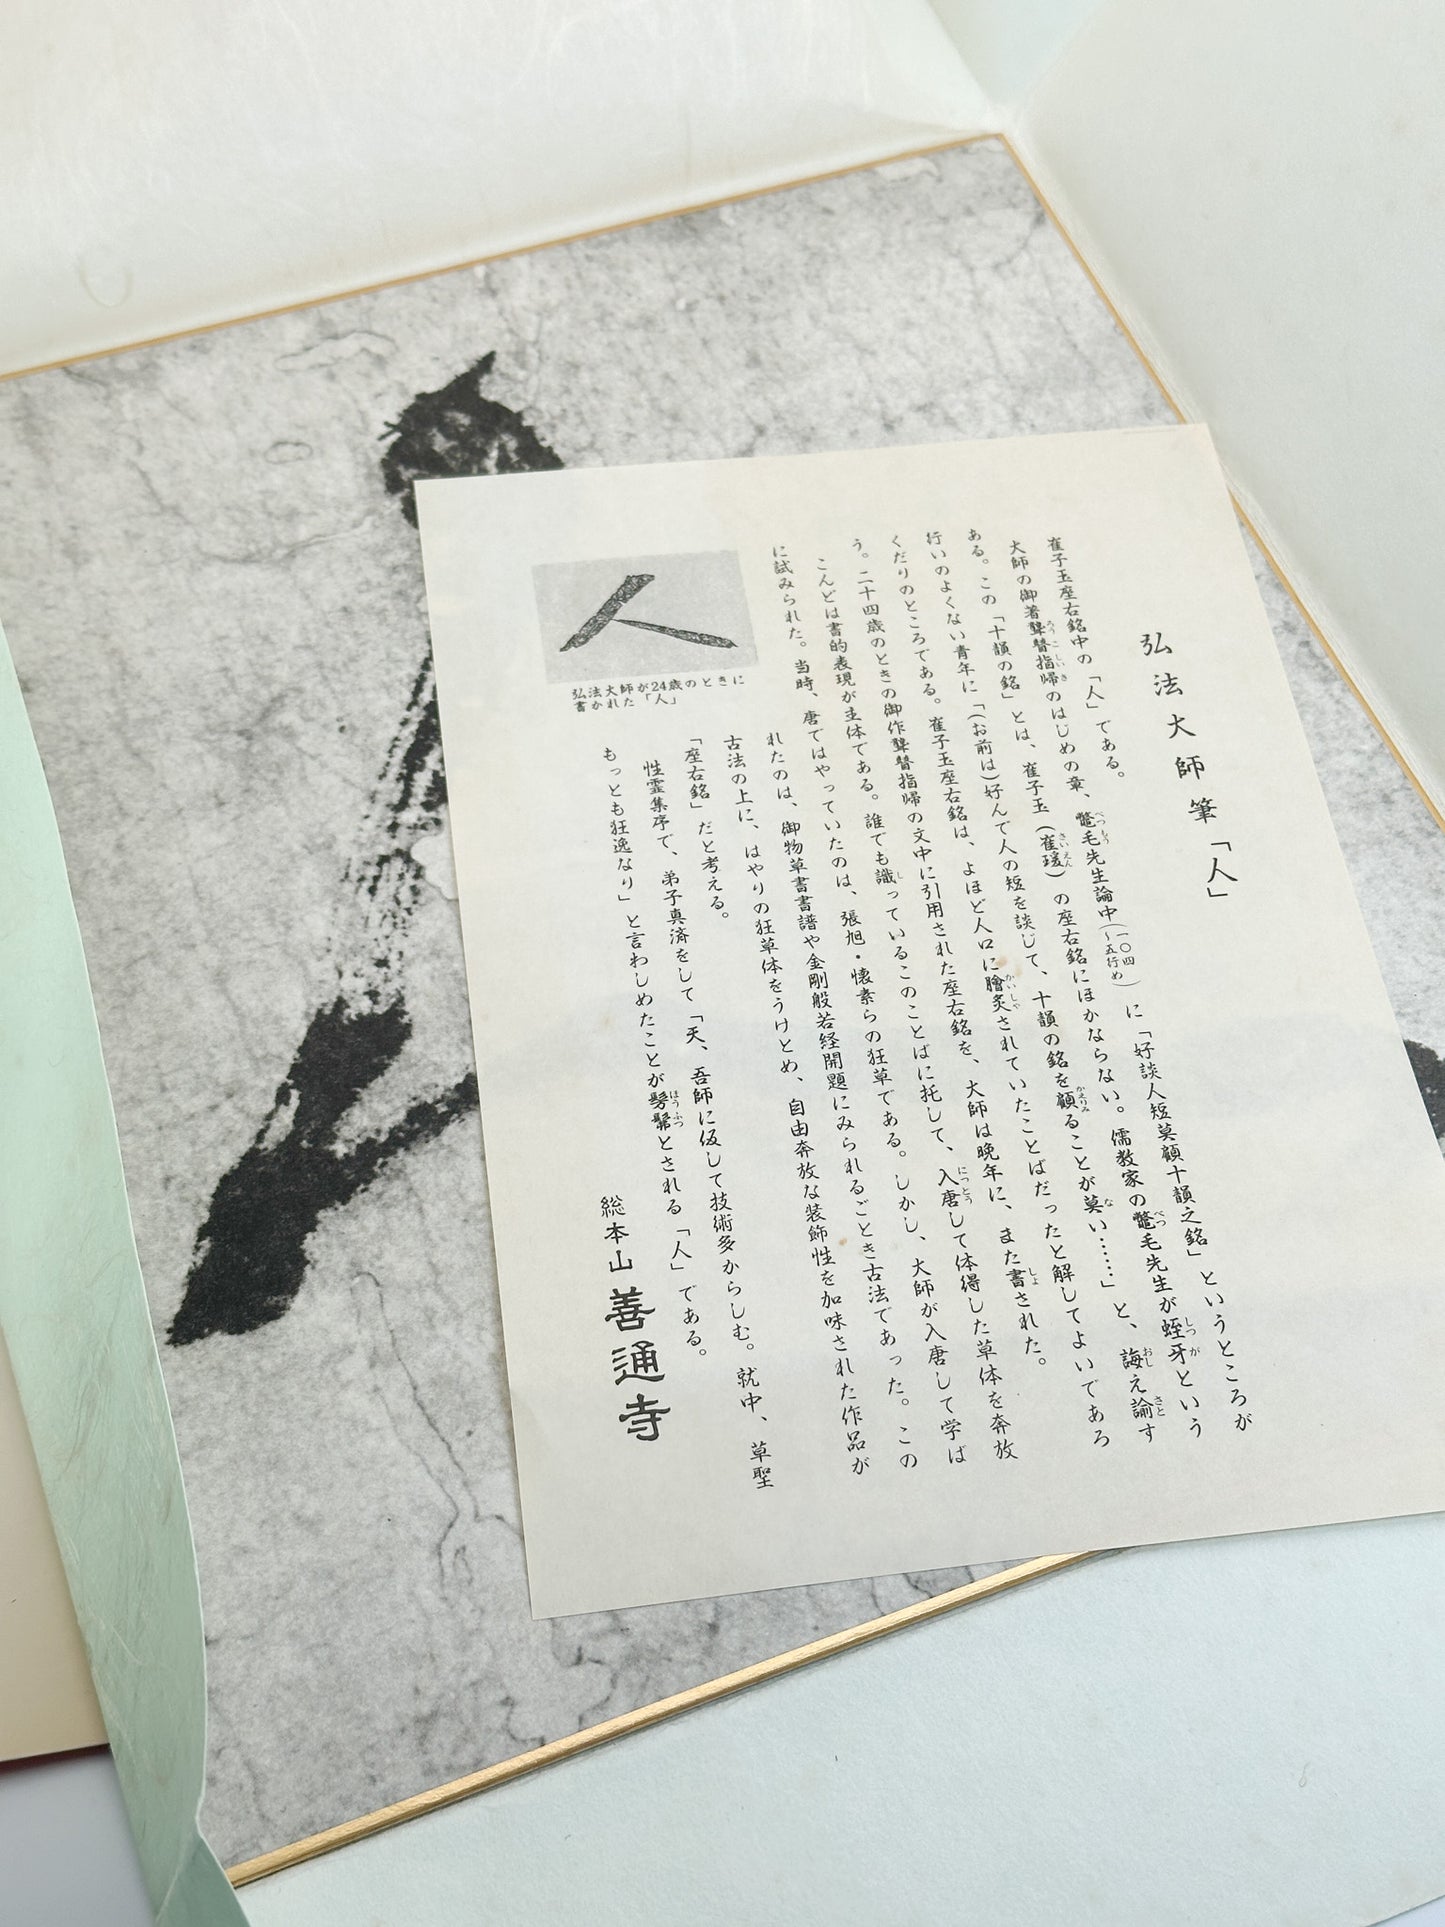 弘法大師筆「人」
崔子玉座右銘中の「人」である。
大師の御著聾瞽指帰のはじめの章、鼈毛先生論中(一〇四〜五行め)に「好談人短莫顧十韻之銘」というところが
ある。この「十韻の銘」とは、崔子玉(崔瑗)の座右銘にほかならない。儒教家の鼈毛先生が蛭牙という
行いのよくない青年に「(お前は)好んで人の短を談じて、十韻の銘を顧ることが莫い……」と、誨え諭す
くだりのところである。崔子玉座右銘は、よほど人口に膾炙されていたことばだったと解してよいであろ
う。二十四歳のときの御作聾瞽指帰の文中に引用された座右銘を、大師は晩年に、また書された。
こんどは書的表現が主体である。誰でも識っているこのことばに托して、入唐して体得した草体を奔放
に試みられた。当時、唐ではやっていたのは、張旭・懐素らの狂草である。しかし、大師が入唐して学ば
れたのは、御物草書書譜や金剛般若経開題にみられるごとき古法であった。この
古法の上に、はやりの狂草体をうけとめ、自由奔放な装飾性を加味された作品が
「座右銘」だと考える。
性霊集序で、弟子真済をして「天、吾師に仮して技術多からしむ。就中、草聖
もっとも狂逸なり」と言わしめたことが髣髴とされる「人」である。
総本山 善通寺
人
弘法大師が24歳のときに
書かれた「人」